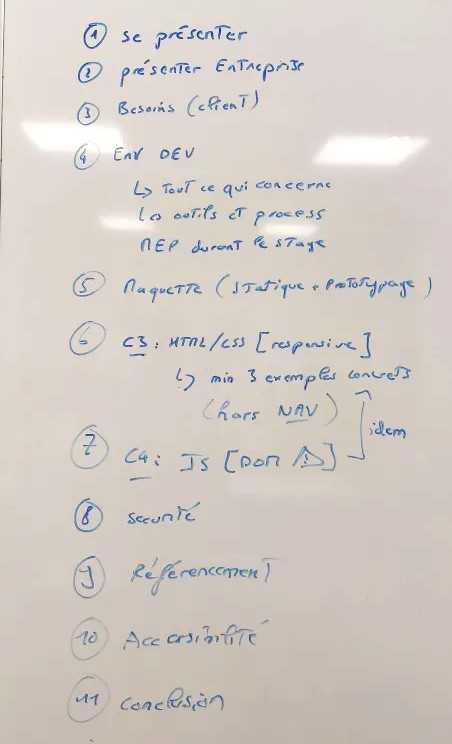 1 se présenter
2 présenter Entreprise
3 Besoins (client)
4 Env DEV
↳ Tout ce qui concerne
les outils et process
MEP durant le stage
5 Maquette (statique + Prototypage)
6 C3 : HTML/CSS [responsive]
↳ min 3 exemples concrets
(hors NAV)
idem
7 C4 : JS [DOM ⚠]
8 sécurité
9 Référencement
10 Accessibilité
11 conclusion